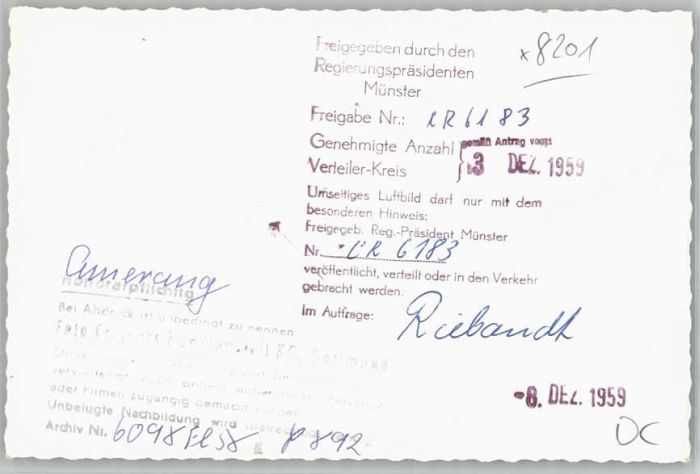 x8201
Freigegeben durch den
Regierungspräsidenten
Münster
Freigabe Nr.: CR 6183
Genehmigte Anzahl
Verteiler-Kreis
gemäß Antrag vom
3 DEZ. 1959
Umseitiges Luftbild darf nur mit dem
besonderen Hinweis:
Freigegeb. Reg.-Präsident Münster
Nr. CR 6183
veröffentlicht, verteilt oder in den Verkehr
gebracht werden.
Im Auftrage: Riebandt
-8. DEZ. 1959
DC
Amerang
honorarpflichtig
Bei Abdruck ist unbedingt zu nennen
Foto KG, Dortmund
oder Firmen zugängig gemacht werden
Unbefugte Nachbildung wird
Archiv Nr. p 892